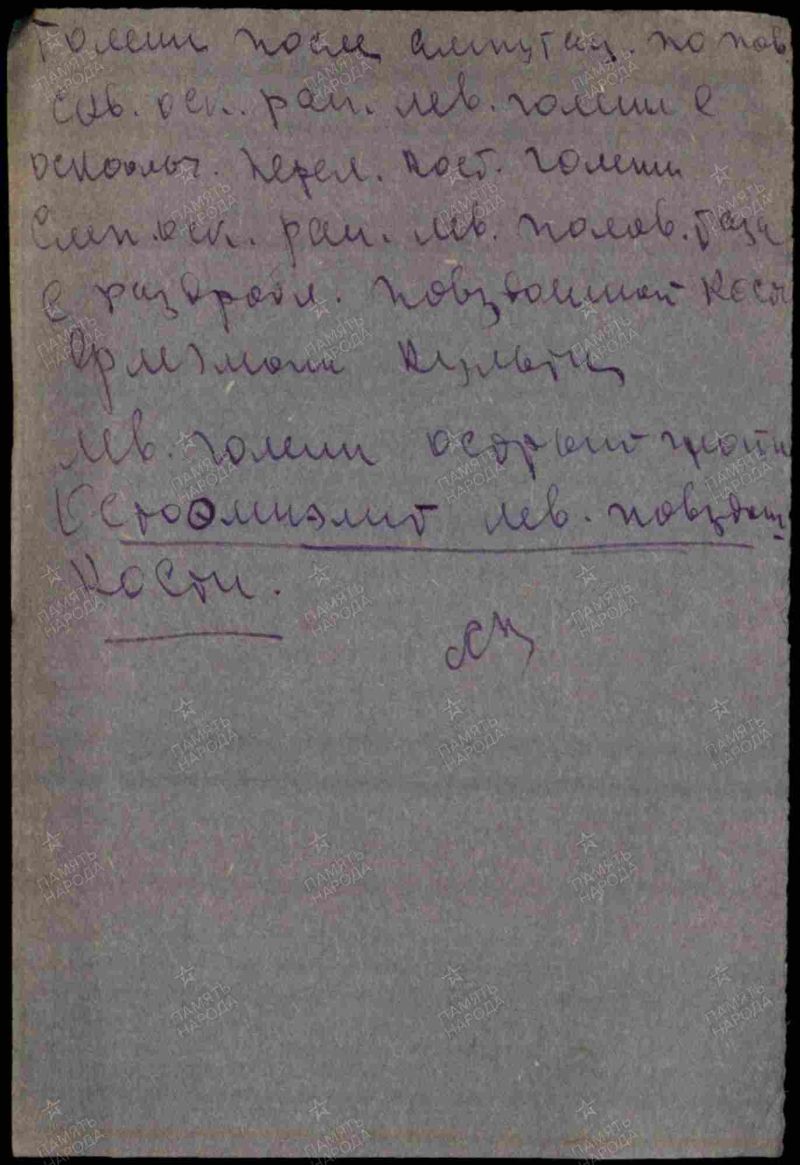 Голени после ампутац. по пов.
скв. оск. ран. лев. голени с
оскольч. перел. кост. голени
Слеп. оск. ран. лев. полов. таза
с раздробл. повздошной кост
культи
лев. голени острый гнойн
Остеомиэлит лев. повздош
кости.